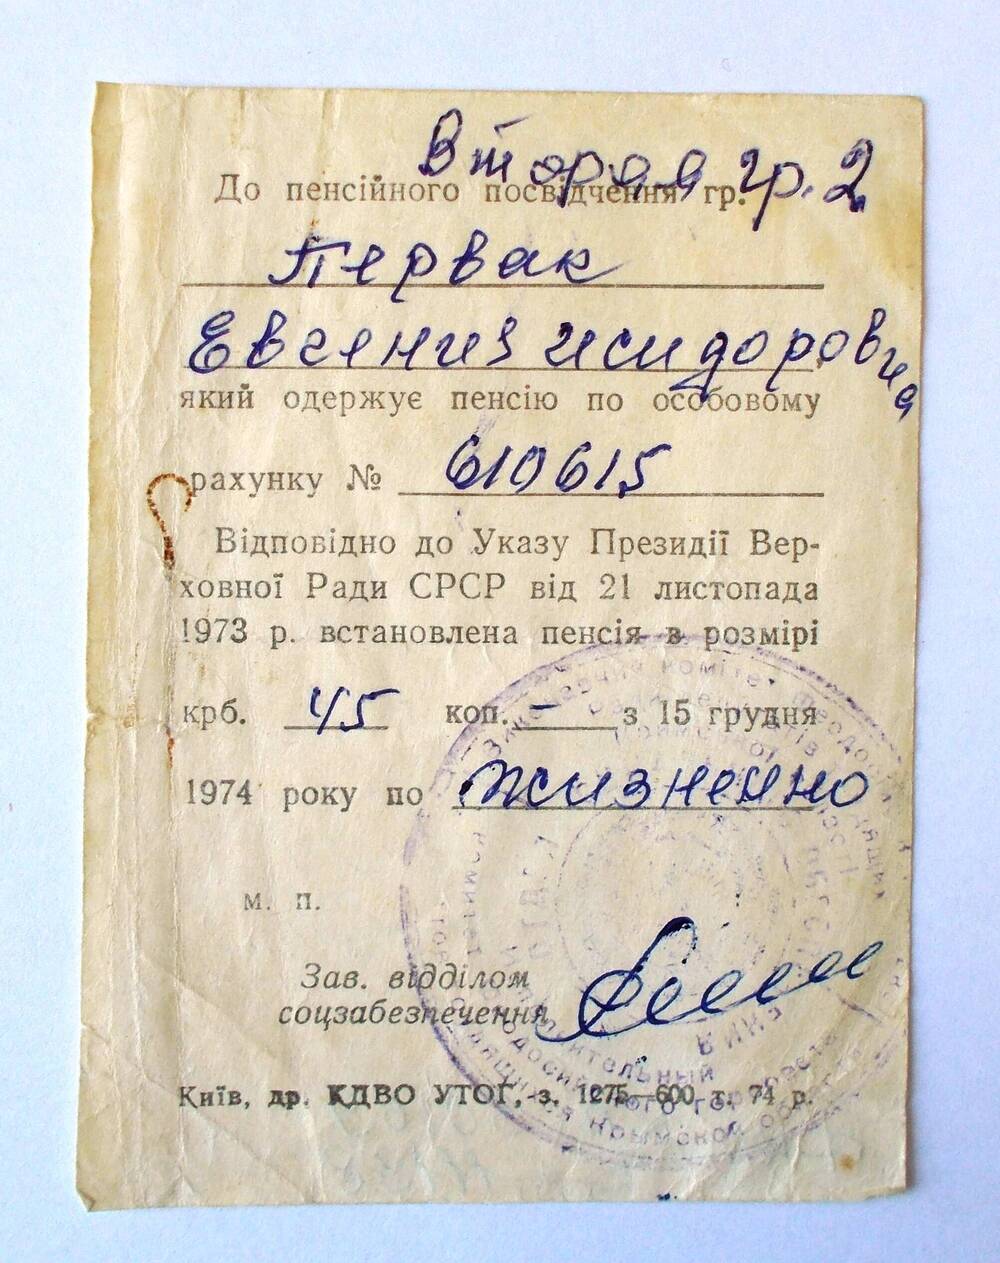 Вторая гр. 2
До пенсійного посвідчення гр.
Первак
Евгения исидоровна
який одержує пенсію по особовому
рахунку № 610615
Відповідно до Указу Президії Вер-
ховної Ради СРСР від 21 листопада
1973 р. встановлена пенсія в розмірі
крб. 45 коп. – з 15 грудня
1974 року по жизненно
м. п.
Зав. відділом
соцзабезпечення
Київ, др. КДВО УТОГ, з. 1275—600 т. 74 р.